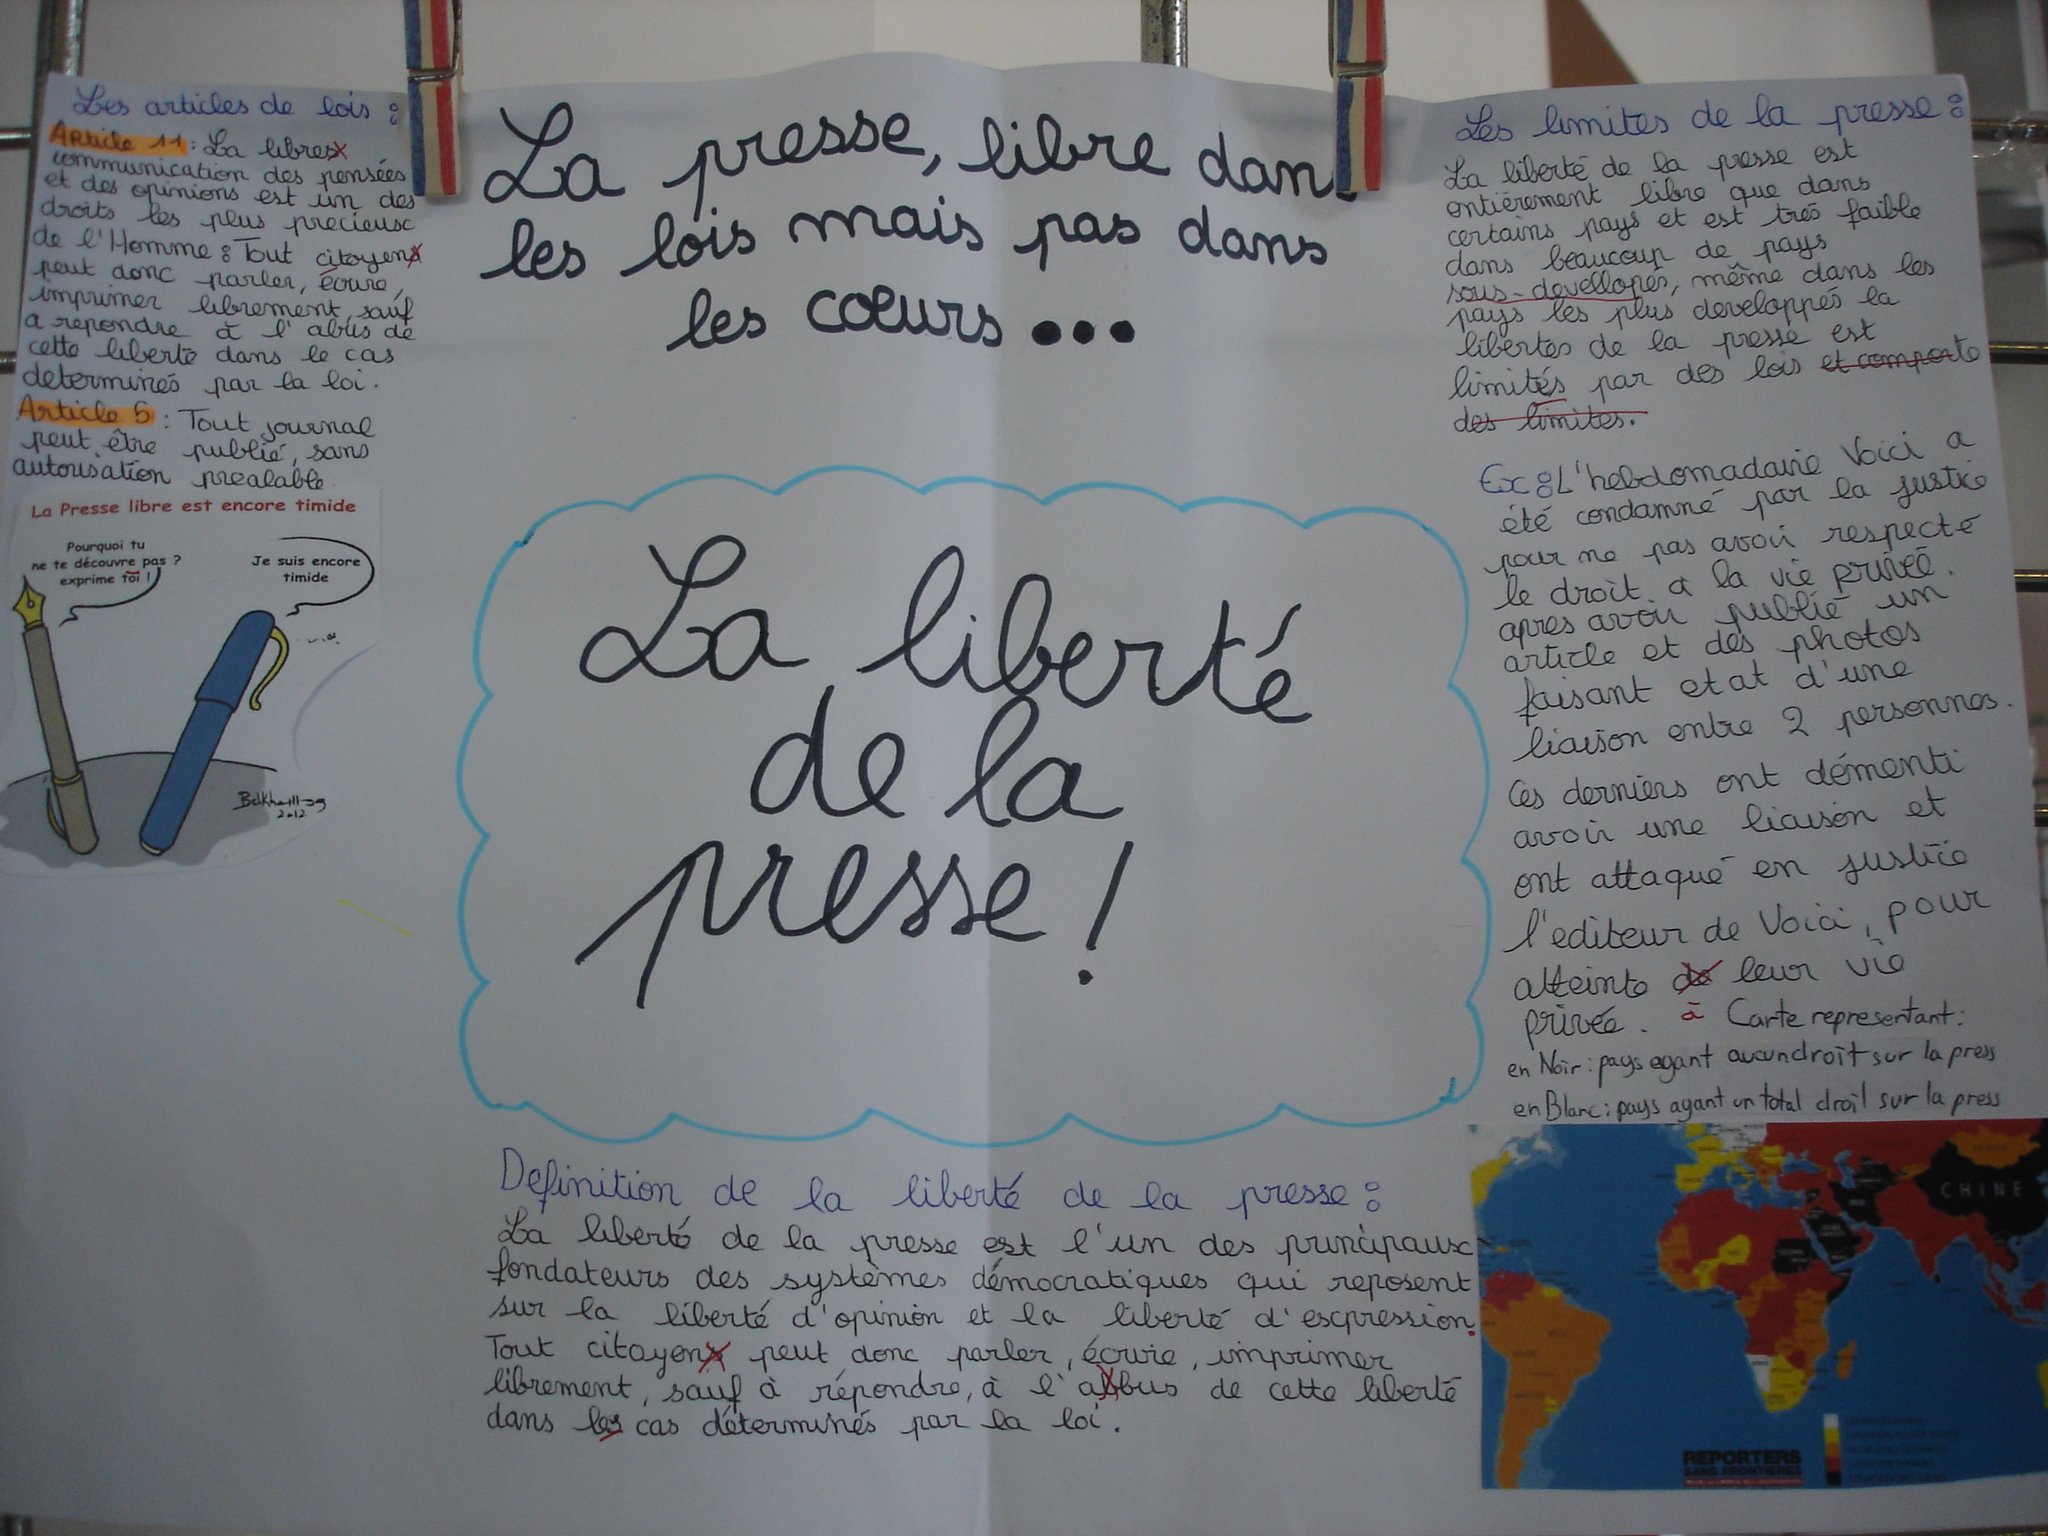 Les articles de lois :
Article 11 : La libres
communication des pensées
et des opinions est un des
droits les plus precieux
de l'Homme : Tout citoyens
peut donc parler, écrire,
imprimer librement, sauf
a repondre à l'abus de
cette liberté dans le cas
determinés par la loi.
Article 5 : Tout journal
peut être publié, sans
autorisation prealable.
La Presse libre est encore timide
Pourquoi tu
ne te découvre pas ?
exprime toi !
Je suis encore
timide
2012
La presse, libre dans
les lois mais pas dans
les cœurs...
La liberté
de la
presse !
Definition de la liberté de la presse :
La liberté de la presse est l'un des principaux
fondateurs des systèmes démocratiques qui reposent
sur la liberté d'opinion et la liberté d'expression.
Tout citoyens peut donc parler, écrire, imprimer
librement, sauf à répondre, à l'abbus de cette liberté
dans les cas déterminés par la loi.
Les limites de la presse :
La liberté de la presse est
entiérement libre que dans
certains pays et est trés faible
dans beaucoup de pays
sous-devellopés, même dans les
pays les plus developpés la
libertés de la presse est
limités par des lois et comporte
des limites.
Ex : L'hebdomadaire Voici a
été condamné par la justice
pour ne pas avoir respecté
le droit a la vie privée.
apres avoir publié un
article et des photos
faisant etat d'une
liaison entre 2 personnes.
Ces derniers ont démenti
avoir une liaison et
ont attaqué en justice
l'editeur de Voici, pour
atteinte de leur vie
privée. à Carte representant :
en Noir : pays ayant aucun droit sur la press
en Blanc : pays ayant un total droit sur la press
CHINE
REPORTERS
SANS FRONTIERES